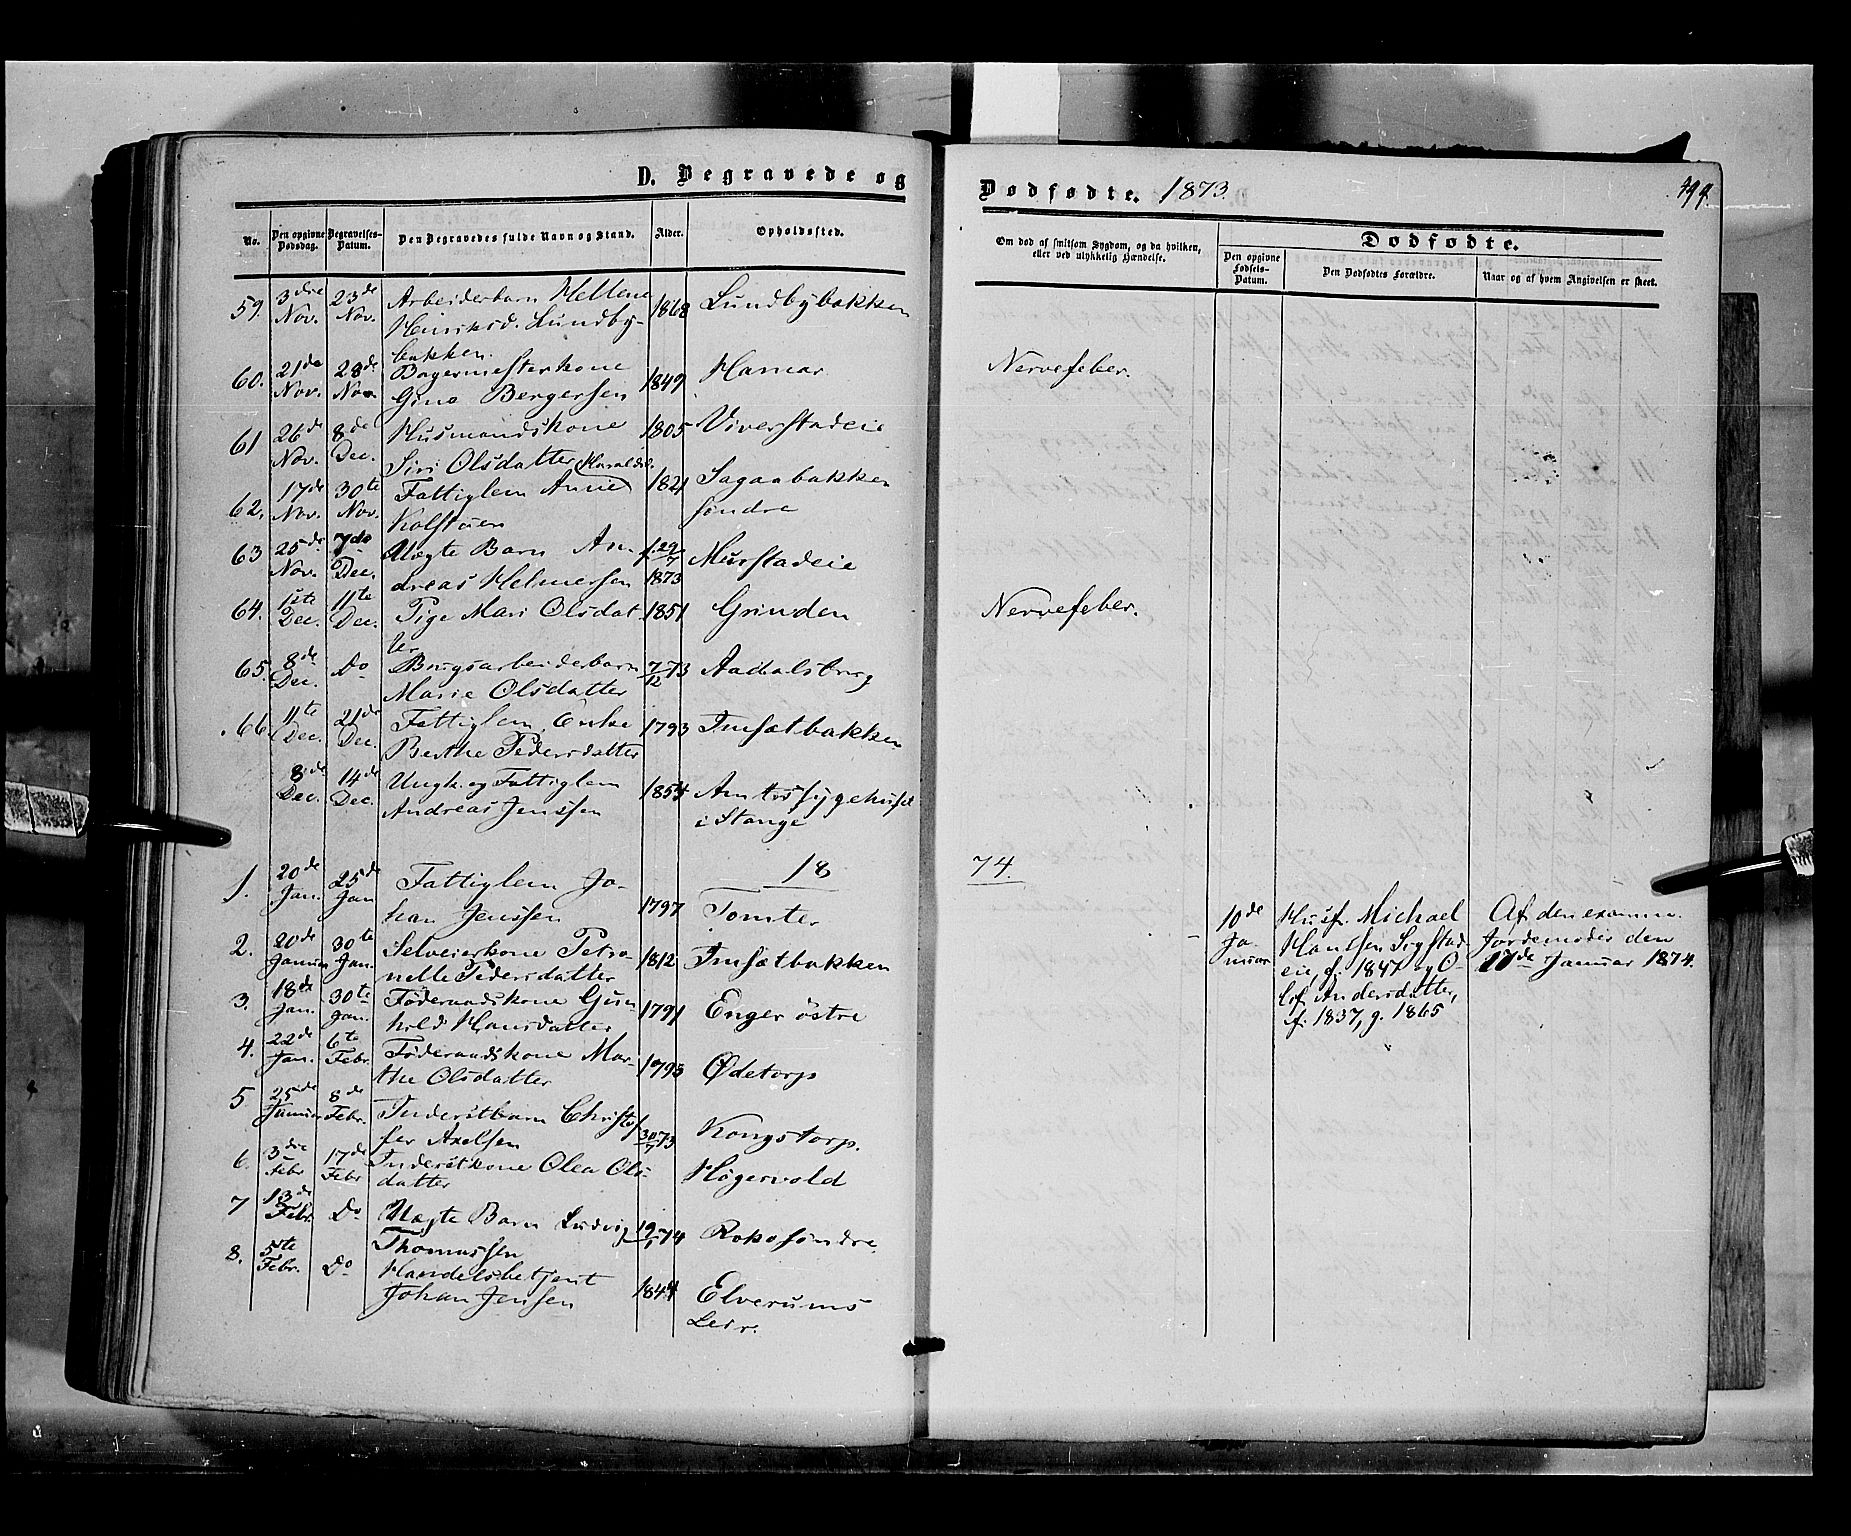 D. Begravede og
Dødfødte. 1873.
No.
Den opgivne Dødsdag.
Begravelses-Datum.
Den Begravedes fulde Navn og Stand.
Alder.
Opholdssted.
Om død af smitsom Sygdom, og da hvilken,
eller ved ulykkelig Hændelse.
Dødfødte.
Den opgivne Fødsels-Datum.
Den Dødfødtes Forældre.
Naar og af hvem Angivelsen er skeet.
59. 3dre Nov. 23de Nov. Arbeiderbarn Hellene 1868 Lundbybakken
Henriksd. Lundby-
bakken.
60. 21de Nov. 28de Nov. Bagermesterkone 1849 Hamar Nervefeber.
Gina Bergersen
61 26de Nov. 8de Dec. Husmandskone 1805 Viverstadeie
Siri Olsdatter
62. 17de Nov. 30te Nov. Fattiglem Anne Haraldsd. 1821 Sagaabakken
Kolstuen søndre
63 25de Nov. 7de Dec. Uægte Barn An- f. 29/7 Murstadeie
dreas Helmersen 1873
64. 1ste Dec. 11te Dec. Pige Mari Olsdat- 1851 Grinden Nervefeber.
ter
65. 8de Dec. Do Brugsarbeiderbarn 7/12 73 Aadalsbrug
Marie Olsdatter
66. 11te Dec. 21de Dec. Fattiglem, Enke 1793 Imsætbakken
Berthe Pedersdatter
8de Dec. 14de Dec. Ungk. og Fattiglem 1854 Amtssygehuset
Andreas Jenssen i Stange
18 74.
1. 20de Jan. 25de Jan Fattiglem Jo- 1797 Tomter
han Jenssen
10de Januar Husf. Michael
Hansen Sygstad-
eie, f. 1847 og O-
lif. Andersdatter,
f. 1837, g. 1865
Af den examin.
Jordemoder den
17de Januar 1874.
2. 20de Januar 30te Jan. Selveierkone Petro- 1812 Imsætbakken
nelle Pedersdatter
3. 18de Jan. 30te Jan. Føderaadskone Gun- 1791 Enger østre
hild Hansdatter
4. 22de Jan. 6te Febr. Føderaadskone Mar- 1793 Ødetorp
the Olsdatter
5 25de Januar 8de Febr. Inderstbarn Christof- 30/7 73 Kongstorp.
fer Axelsen
6. 3dre Febr 17de Febr Inderstkone Olea Ols- Högervold
datter
7 13de Febr. Do Uægte Barn Ludvig 19/1 74 Roko söndre.
Thomassen
8. 5te Febr. Do Handelsbetjent 1844 Elverums
Johan Jensen Leir.